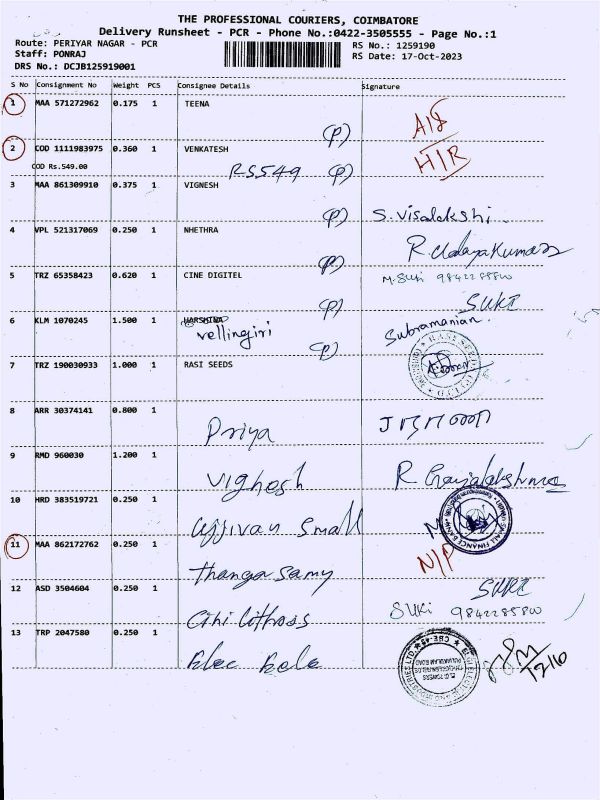 THE PROFESSIONAL COURIERS, COIMBATORE
Delivery Runsheet - PCR - Phone No.:0422-3505555 - Page No.:1
Route: PERIYAR NAGAR - PCR
RS No.: 1259190
Staff: PONRAJ
RS Date: 17-Oct-2023
DRS No.: DCJB125919001
S No Consignment No Weight PCS Consignee Details Signature
1 MAA 571272962 0.175 1 TEENA
(P)
2 COD 1111983975 0.360 1 VENKATESH
H/R
COD Rs.549.00 RS549 (P)
3 MAA 861309910 0.375 1 VIGNESH
(P) S. Visalakshi.
4 VPL 521317069 0.250 1 NHETHRA
(P) R. Udayakumar
5 TRZ 65358423 0.620 1 CINE DIGITEL M. Suki
(P) SUKI
6 KLM 1070245 1.500 1 HARSHINA
vellingiri (P) Subramanian.
7 TRZ 190030933 1.000 1 RASI SEEDS
8 ARR 30374141 0.800 1
Priya
9 RMD 960030 1.200 1
Vighesh R Gajalakshmi
10 HRD 383519721 0.250 1
Ujjivan Small
SMALL FINANCE BANK
11 MAA 862172762 0.250 1 N/P
Thangasamy
12 ASD 3504604 0.250 1 SUKI
Suki 9842285800
13 TRP 2047580 0.250 1
Elec Bela